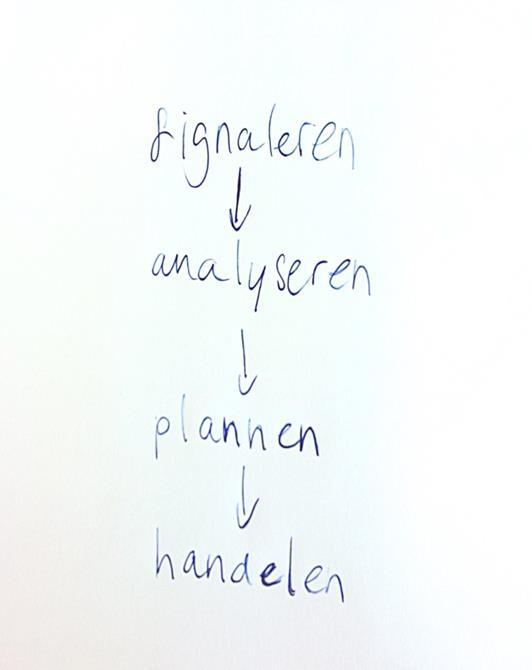 signaleren
analyseren
plannen
handelen